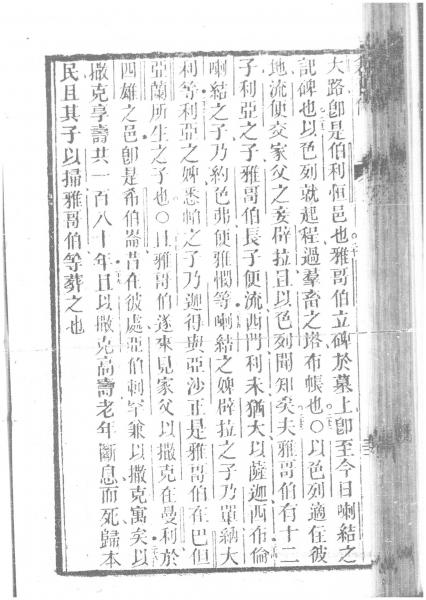 大路卽是伯利恒邑也雅哥伯立碑於墓上卽至今日喇結之
記碑也以色列就起程過羣畜之塔布帳也〇以色列適住彼
地流便交家父之妾辟拉且以色列聞知矣夫雅哥伯有十二
子利亞之子雅哥伯長子便流西門利未猶大以薩迦西布倫
喇結之子乃約色弗便雅憫等喇結之婢辟拉之子乃單納大
利等利亞之婢悉帕之子乃迦得與亞沙正是雅哥伯在巴但
亞蘭所生之子也〇且雅哥伯遂來見家父以撒克在曼利於
四雄之邑卽是希伯崙昔在彼處亞伯剌罕兼以撒克寓矣以
撒克享壽共一百八十年且以撒克高壽老年斷息而死歸本
民且其子以掃雅哥伯等葬之也